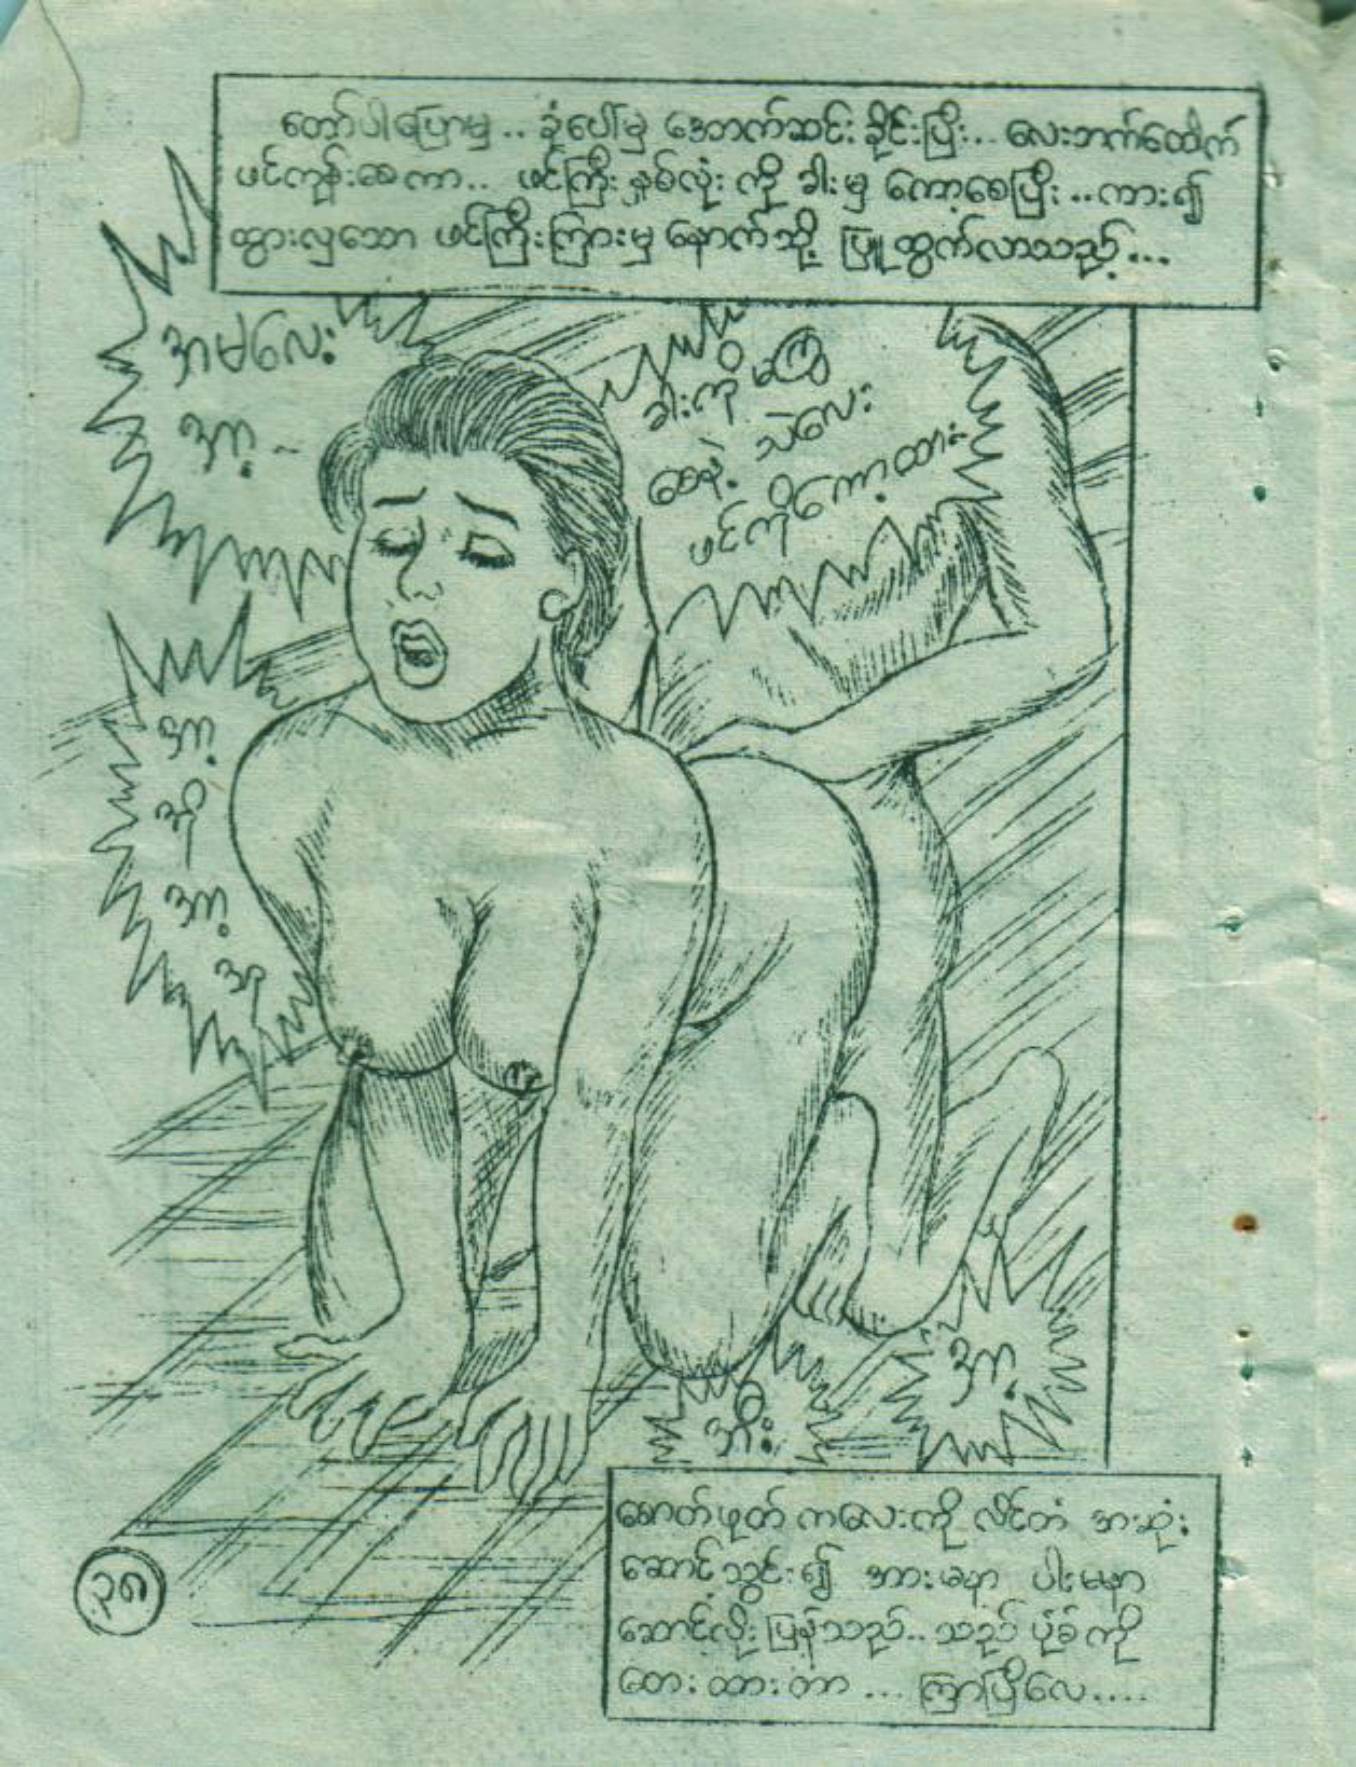 တော်ပါပြောမှ .. ခုံပေါ်မှ အောက်ဆင်းခိုင်းပြီး... လေးဘက်ထောက်
ဖင်ကုန်းစေကာ.. ဖင်ကြီးနှစ်လုံးကို ခါးမှ ကော့စေပြီး ..ကား၍
ထွားလှသော ဖင်ကြီးကြားမှ နောက်သို့ ပြူထွက်လာသည့်...
အမလေး
အာ့ ~
ခါးကို မကြွ
စေနဲ့ သဲလေး
ဖင်ကိုကော့ထား
အာ့
အို
အာ့
အ
အီး
အာ့
စောက်ဖုတ်ကလေးကို လိင်တံ အဆုံး
ဆောင့်သွင်း၍ အားမနာ ပါးမနာ
ဆောင့်လိုးပြန်သည်.. သည်ပုံစံကို
တေးထားတာ ... ကြာပြီလေ....
၃၈